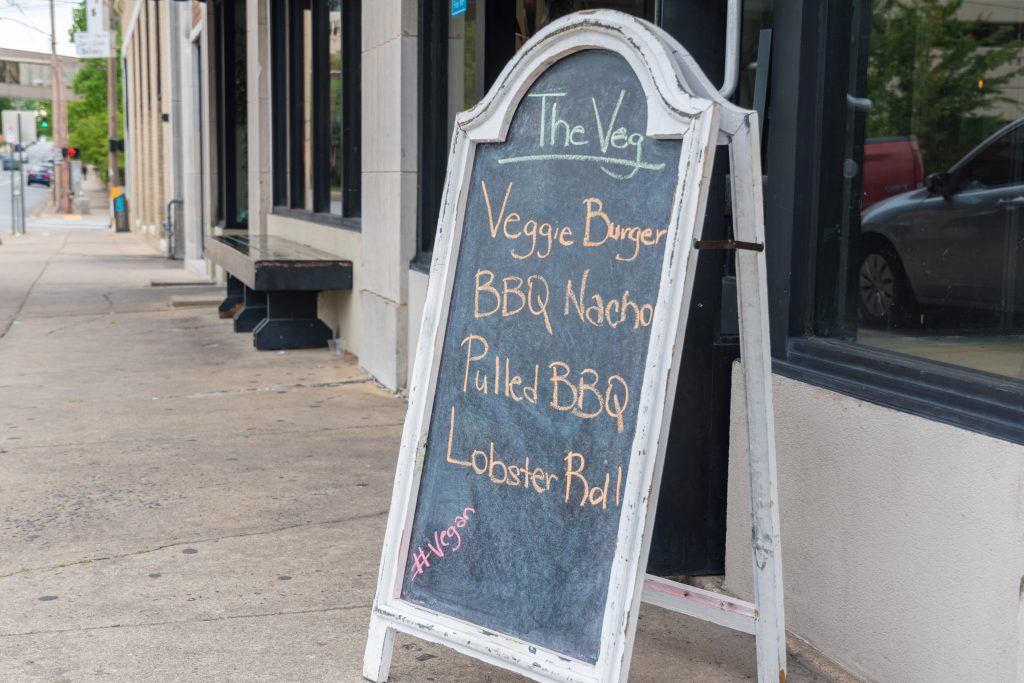 The Veg
Veggie Burger
BBQ Nacho
Pulled BBQ
Lobster Roll
#Vegan